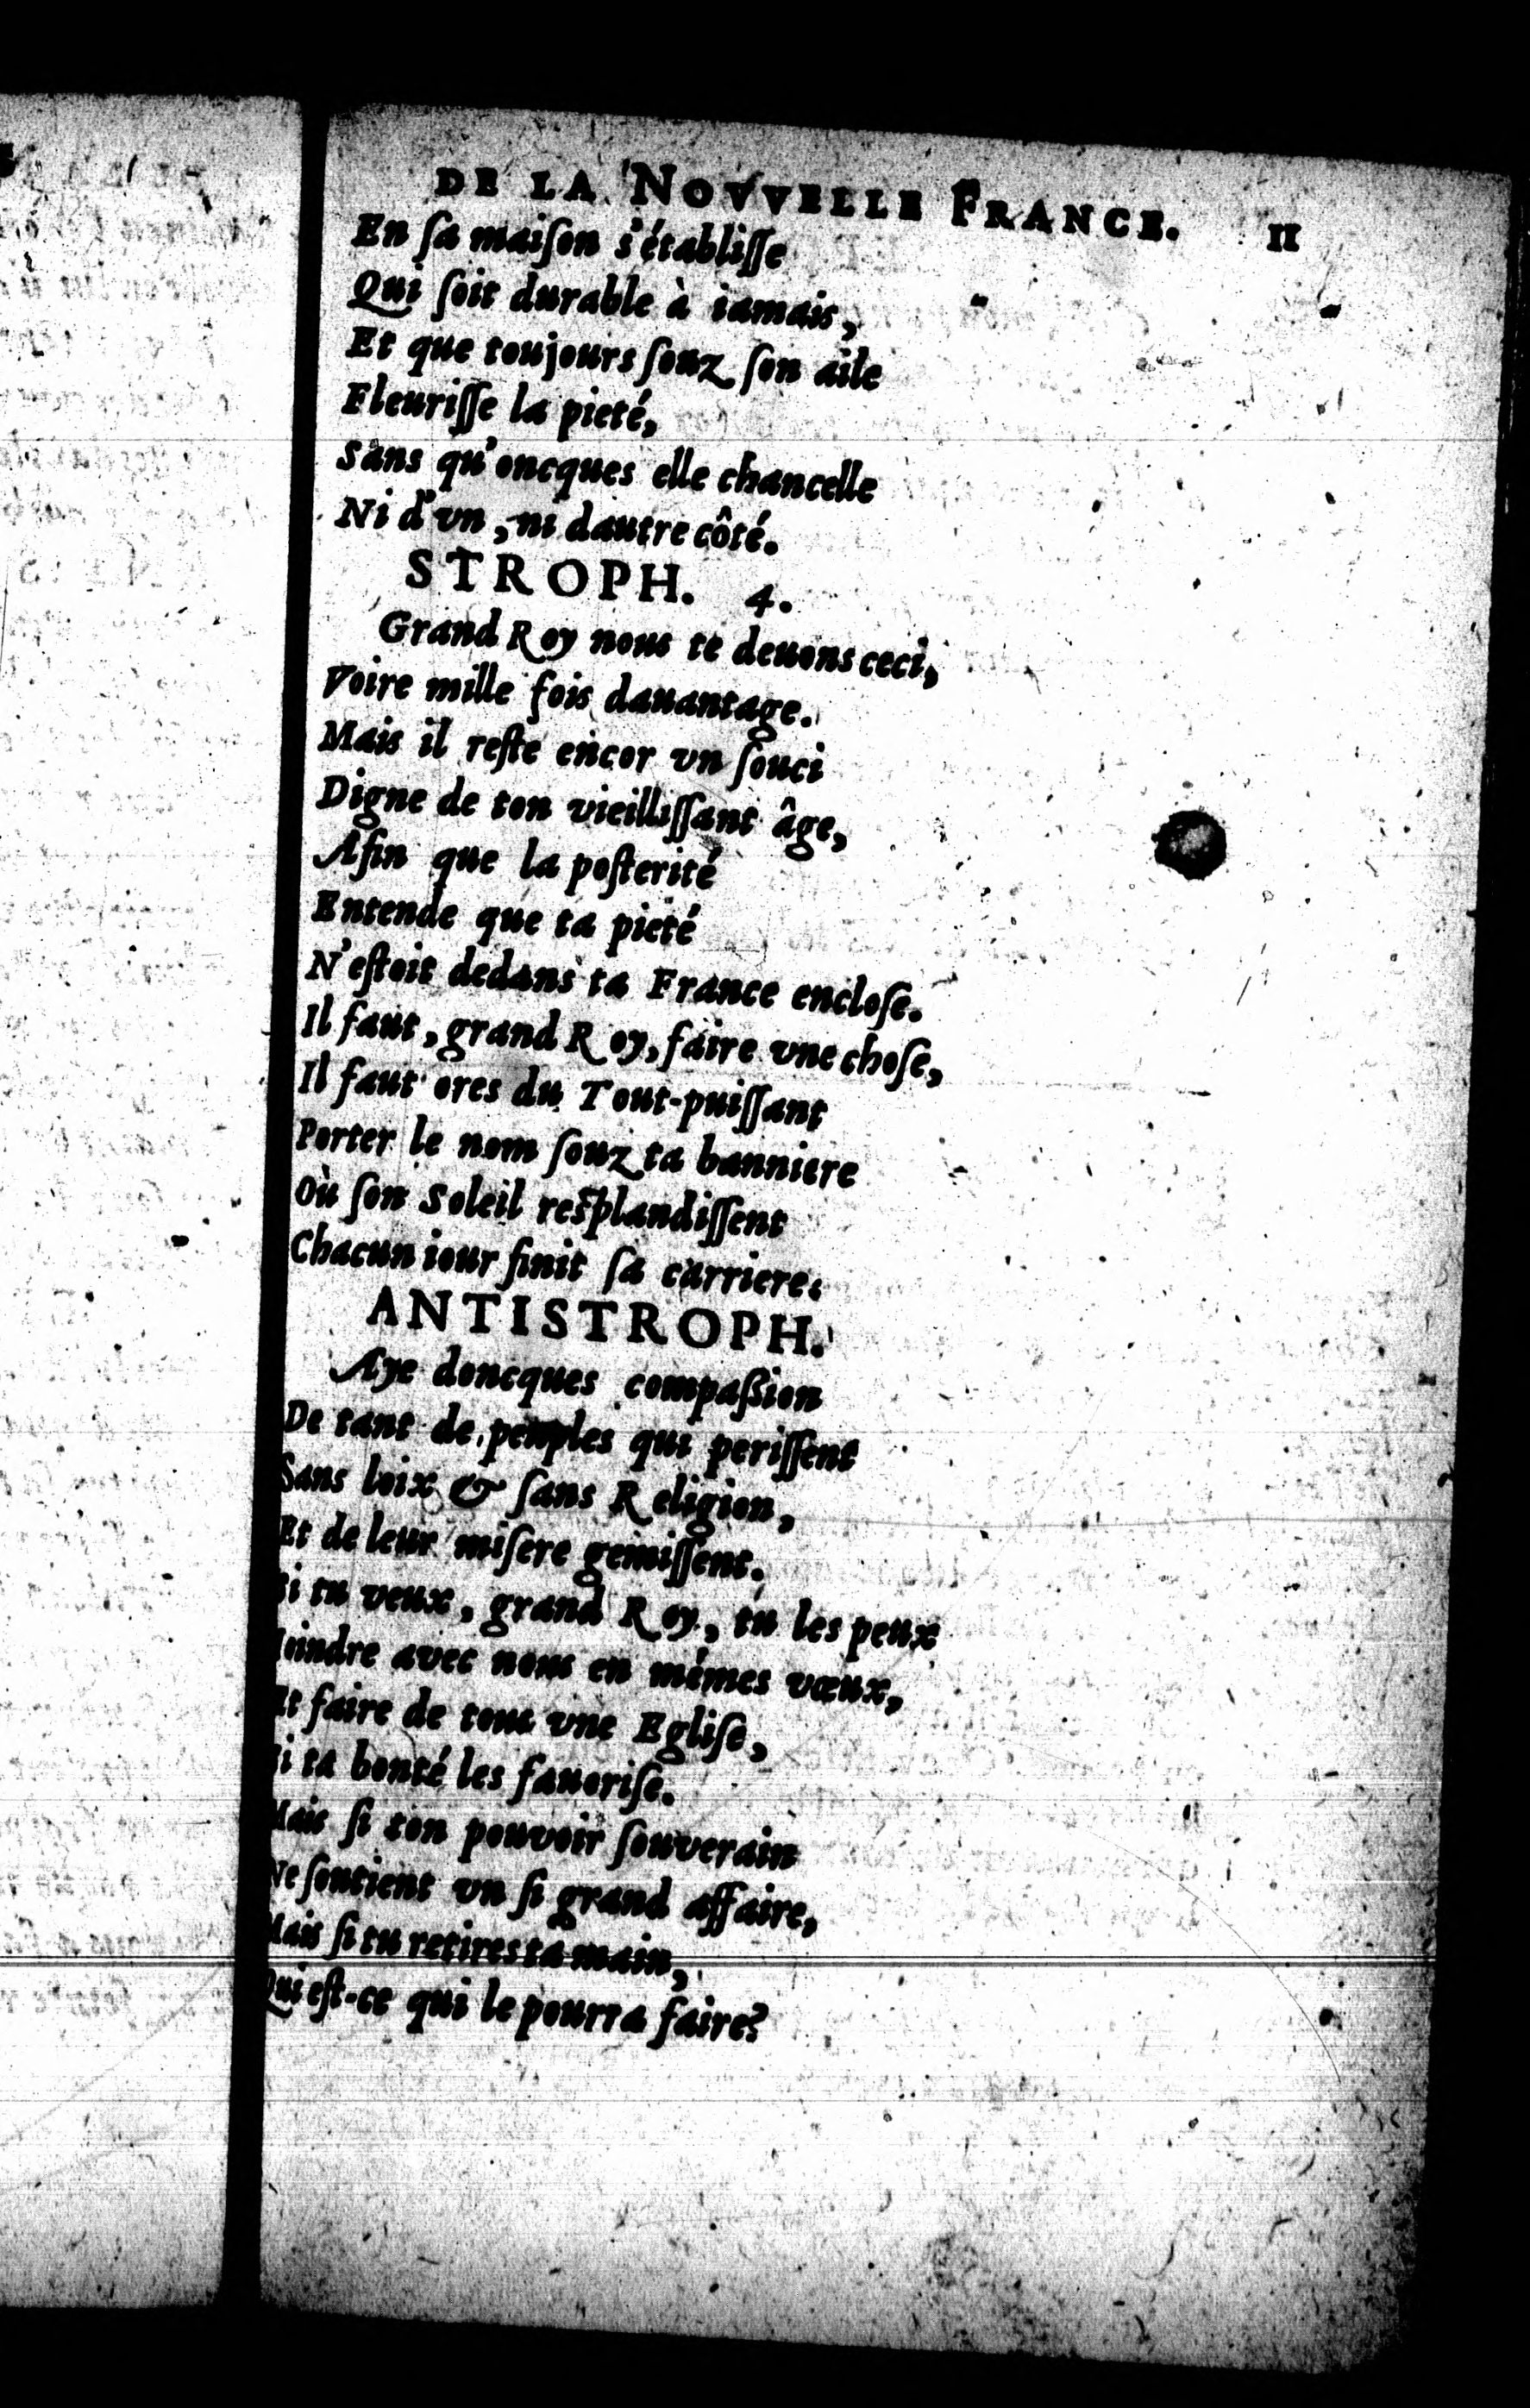 DE LA NOVVELLE FRANCE. II
En ſa maiſon s'établiſſe
Qui ſoit durable à iamais,
Et que toujours ſouz ſon aile
Fleuriſſe la pieté,
Sans qu'oncques elle chancelle
Ni d'vn, ni dautre côté.
STROPH. 4.
Grand Roy nous te deuons ceci,
Voire mille fois dauantage.
Mais il reſte encor vn ſouci
Digne de ton vieilliſſant âge,
Afin que la poſterité
Entende que ta pieté
N'eſtoit dedans ta France encloſe.
Il faut, grand Roy, faire vne choſe,
Il faut ores du Tout-puiſſant
Porter le nom ſouz ta banniere
Où ſon Soleil reſplandiſſent
Chacun iour finit ſa carriere.
ANTISTROPH.
Aye doncques compaßion
De tant de peuples qui periſſent
Sans loix & ſans Religion,
Et de leur miſere gemiſſent.
Si tu veux, grand Roy, tu les peux
Ioindre avec nous en mémes vœux,
Et faire de tous vne Egliſe,
Si ta bonté les fauoriſe.
Mais ſi ton pouvoir ſouverain
Ne ſoutient vn ſi grand affaire,
Mais ſi tu retires ta main,
Qui eſt-ce qui le pourra faire?